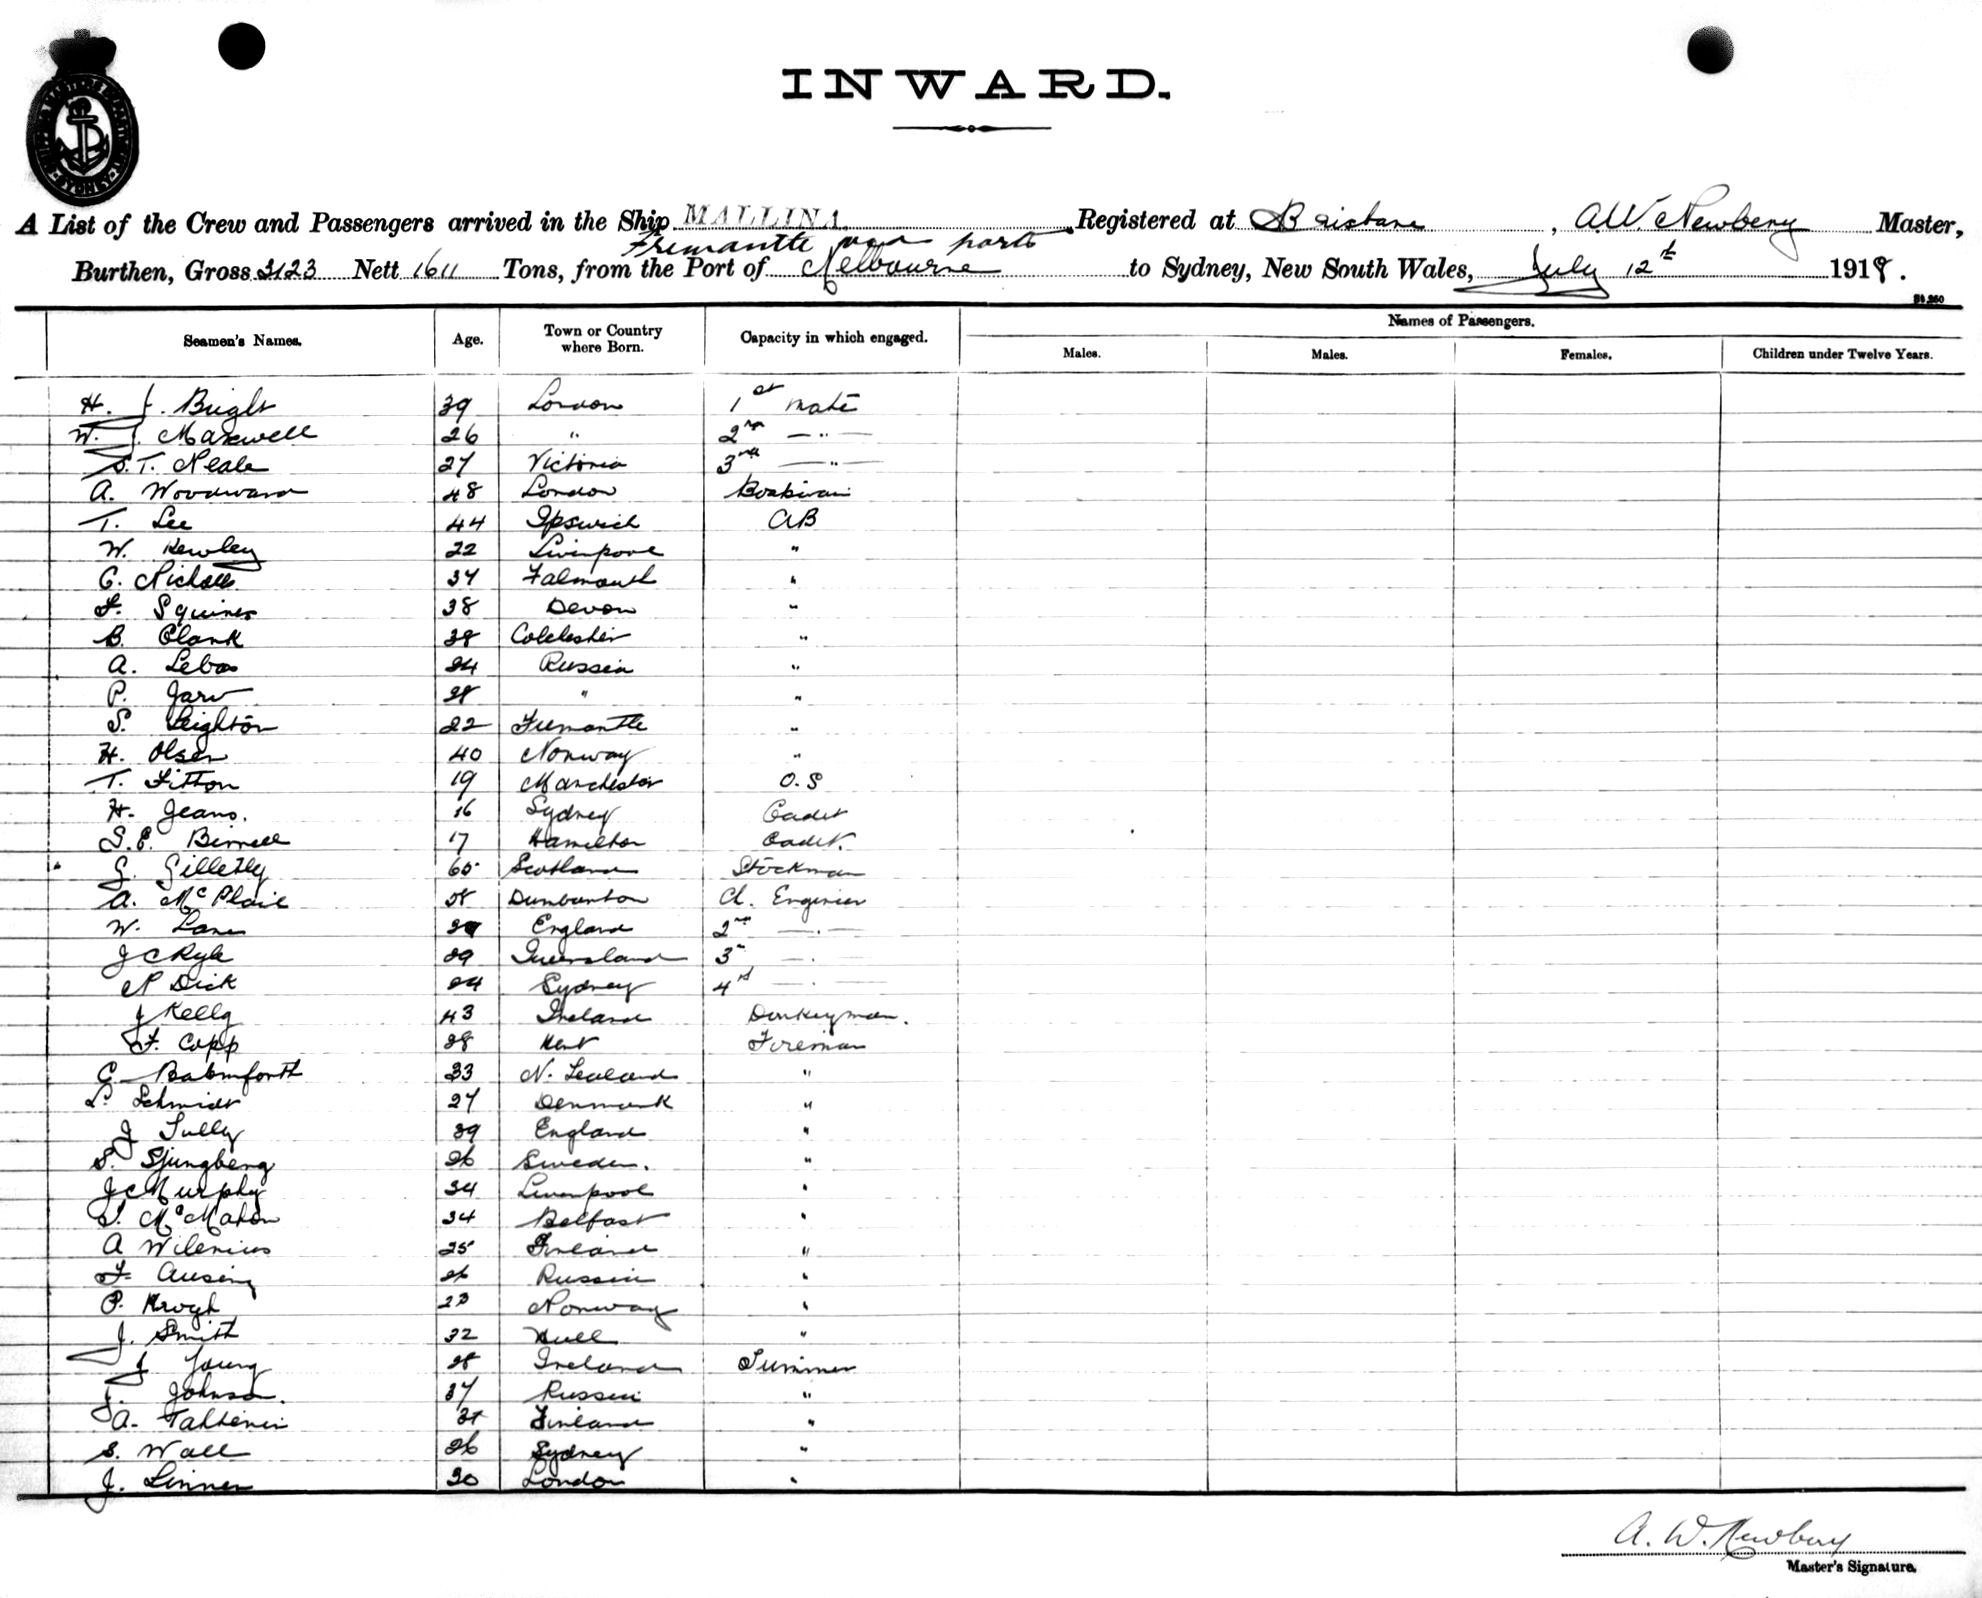 INWARD.
A List of the Crew and Passengers arrived in the Ship MALLINA Registered at Brisbane, A.W. Newbery Master,
Fremantle via ports
Burthen, Gross 3123 Nett 1611 Tons, from the Port of Melbourne to Sydney, New South Wales, July 12th 1919.
Names of Passengers.
Seamen's Names. Age. Town or Country where Born. Capacity in which engaged. Males. Males. Females. Children under Twelve Years.
H. J. Bright 39 London 1st Mate
W. J. Maxwell 26 " 2nd — " —
S.T. Neale 27 Victoria 3rd — " —
A. Woodward 48 London
T. Lee 44 Ipswich AB
W. Kewley 22 Liverpool "
C. Nicholls 37 Falmouth "
F. Squires 38 Devon "
B. Clark 38 Colchester "
A. Lebas 24 Russia "
P. Jarv 28 " "
S. Leighton 22 Fremantle "
H. Olsen 40 Norway "
T. Fitton 19 Manchester O.S
H. Jeans. 16 Sydney Cadet
S.E. Birrell 17 Hamilton Cadet.
G. Gilletly 60 Scotland Stockman
A. McPhail 58 Dumbarton Ch. Engineer
W. Lane England 2nd — . —
J C Ryle 29 Queensland 3rd — .
N Dick 24 Sydney 4th — . —
J Kelly 43 Ireland Donkeyman.
F. Copp 28 Kent Fireman
C. Balmforth 33 N. Zealand "
L. Schmidt 27 Denmark "
J Tully 39 England "
S. Sjungberg 26 Sweden. "
J C Murphy 34 Liverpool "
S. McMahon 34 Belfast "
A Wilenius 25 Finland "
F. Ausing 26 Russia "
P. Krogh 23 Norway "
J. Smith 32 Hull "
J Young 28 Ireland Trimmer
J. Johnson. 37 Russia "
A. Tahtinen Finland "
S. Wall 26 Sydney "
J. Linnen 30 London "
A. W. Newbery
Master's Signature.